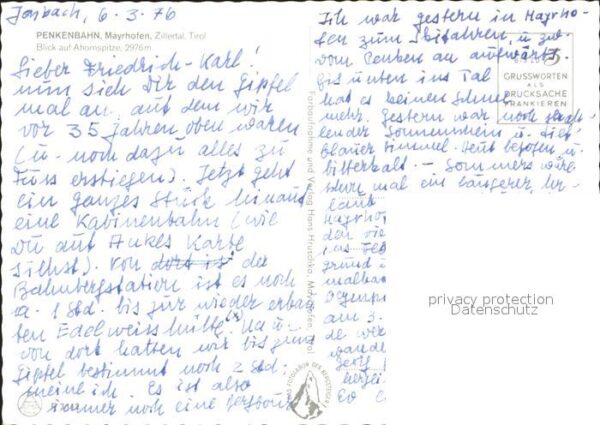 Jenbach, 6.3.76
PENKENBAHN, Mayrhofen, Zillertal, Tirol
Blick auf Ahornspitze, 2976 m
Lieber Friedrich-Karl!
nun sieh Dir den Gipfel
mal an, auf dem wir
vor 35 Jahren oben waren
(u. noch dazu alles zu
Fuss erstiegen). Jetzt geht
ein ganzes Stück hinauf
eine Kabinenbahn (wie
Du auf Karte
siehst). Von dort ist der
Bahnbergstation ist es noch
ca. 1 Std. bis zur wieder erbau
ten Edelweisshütte. Na u.
von dort hatten wir bis zum
Gipfel bestimmt noch 2 Std.
meine ich. Es ist also
immer noch eine
Ich war gestern in Mayrho-
fen zum Skifahren, u. zw.
vom Penken an aufwärts.
bis unten ins Tal
hat es keinen Schnee
mehr. Gestern war noch strah-
lender Sonnenschein u. tief-
blauer Himmel. heut u.
bitterkalt. – Sommers wäre
schon mal ein längerer Ur-
laub
Mayrhof
den vie
grund u
malbac
Olympi
am 3.
de wer
wande
herzli
GRUSSWORTEN
ALS
DRUCKSACHE
FRANKIEREN
Fotoaufnahme und Verlag Hans Hruschka, Mayrhofen, Tirol
privacy protection
Datenschutz